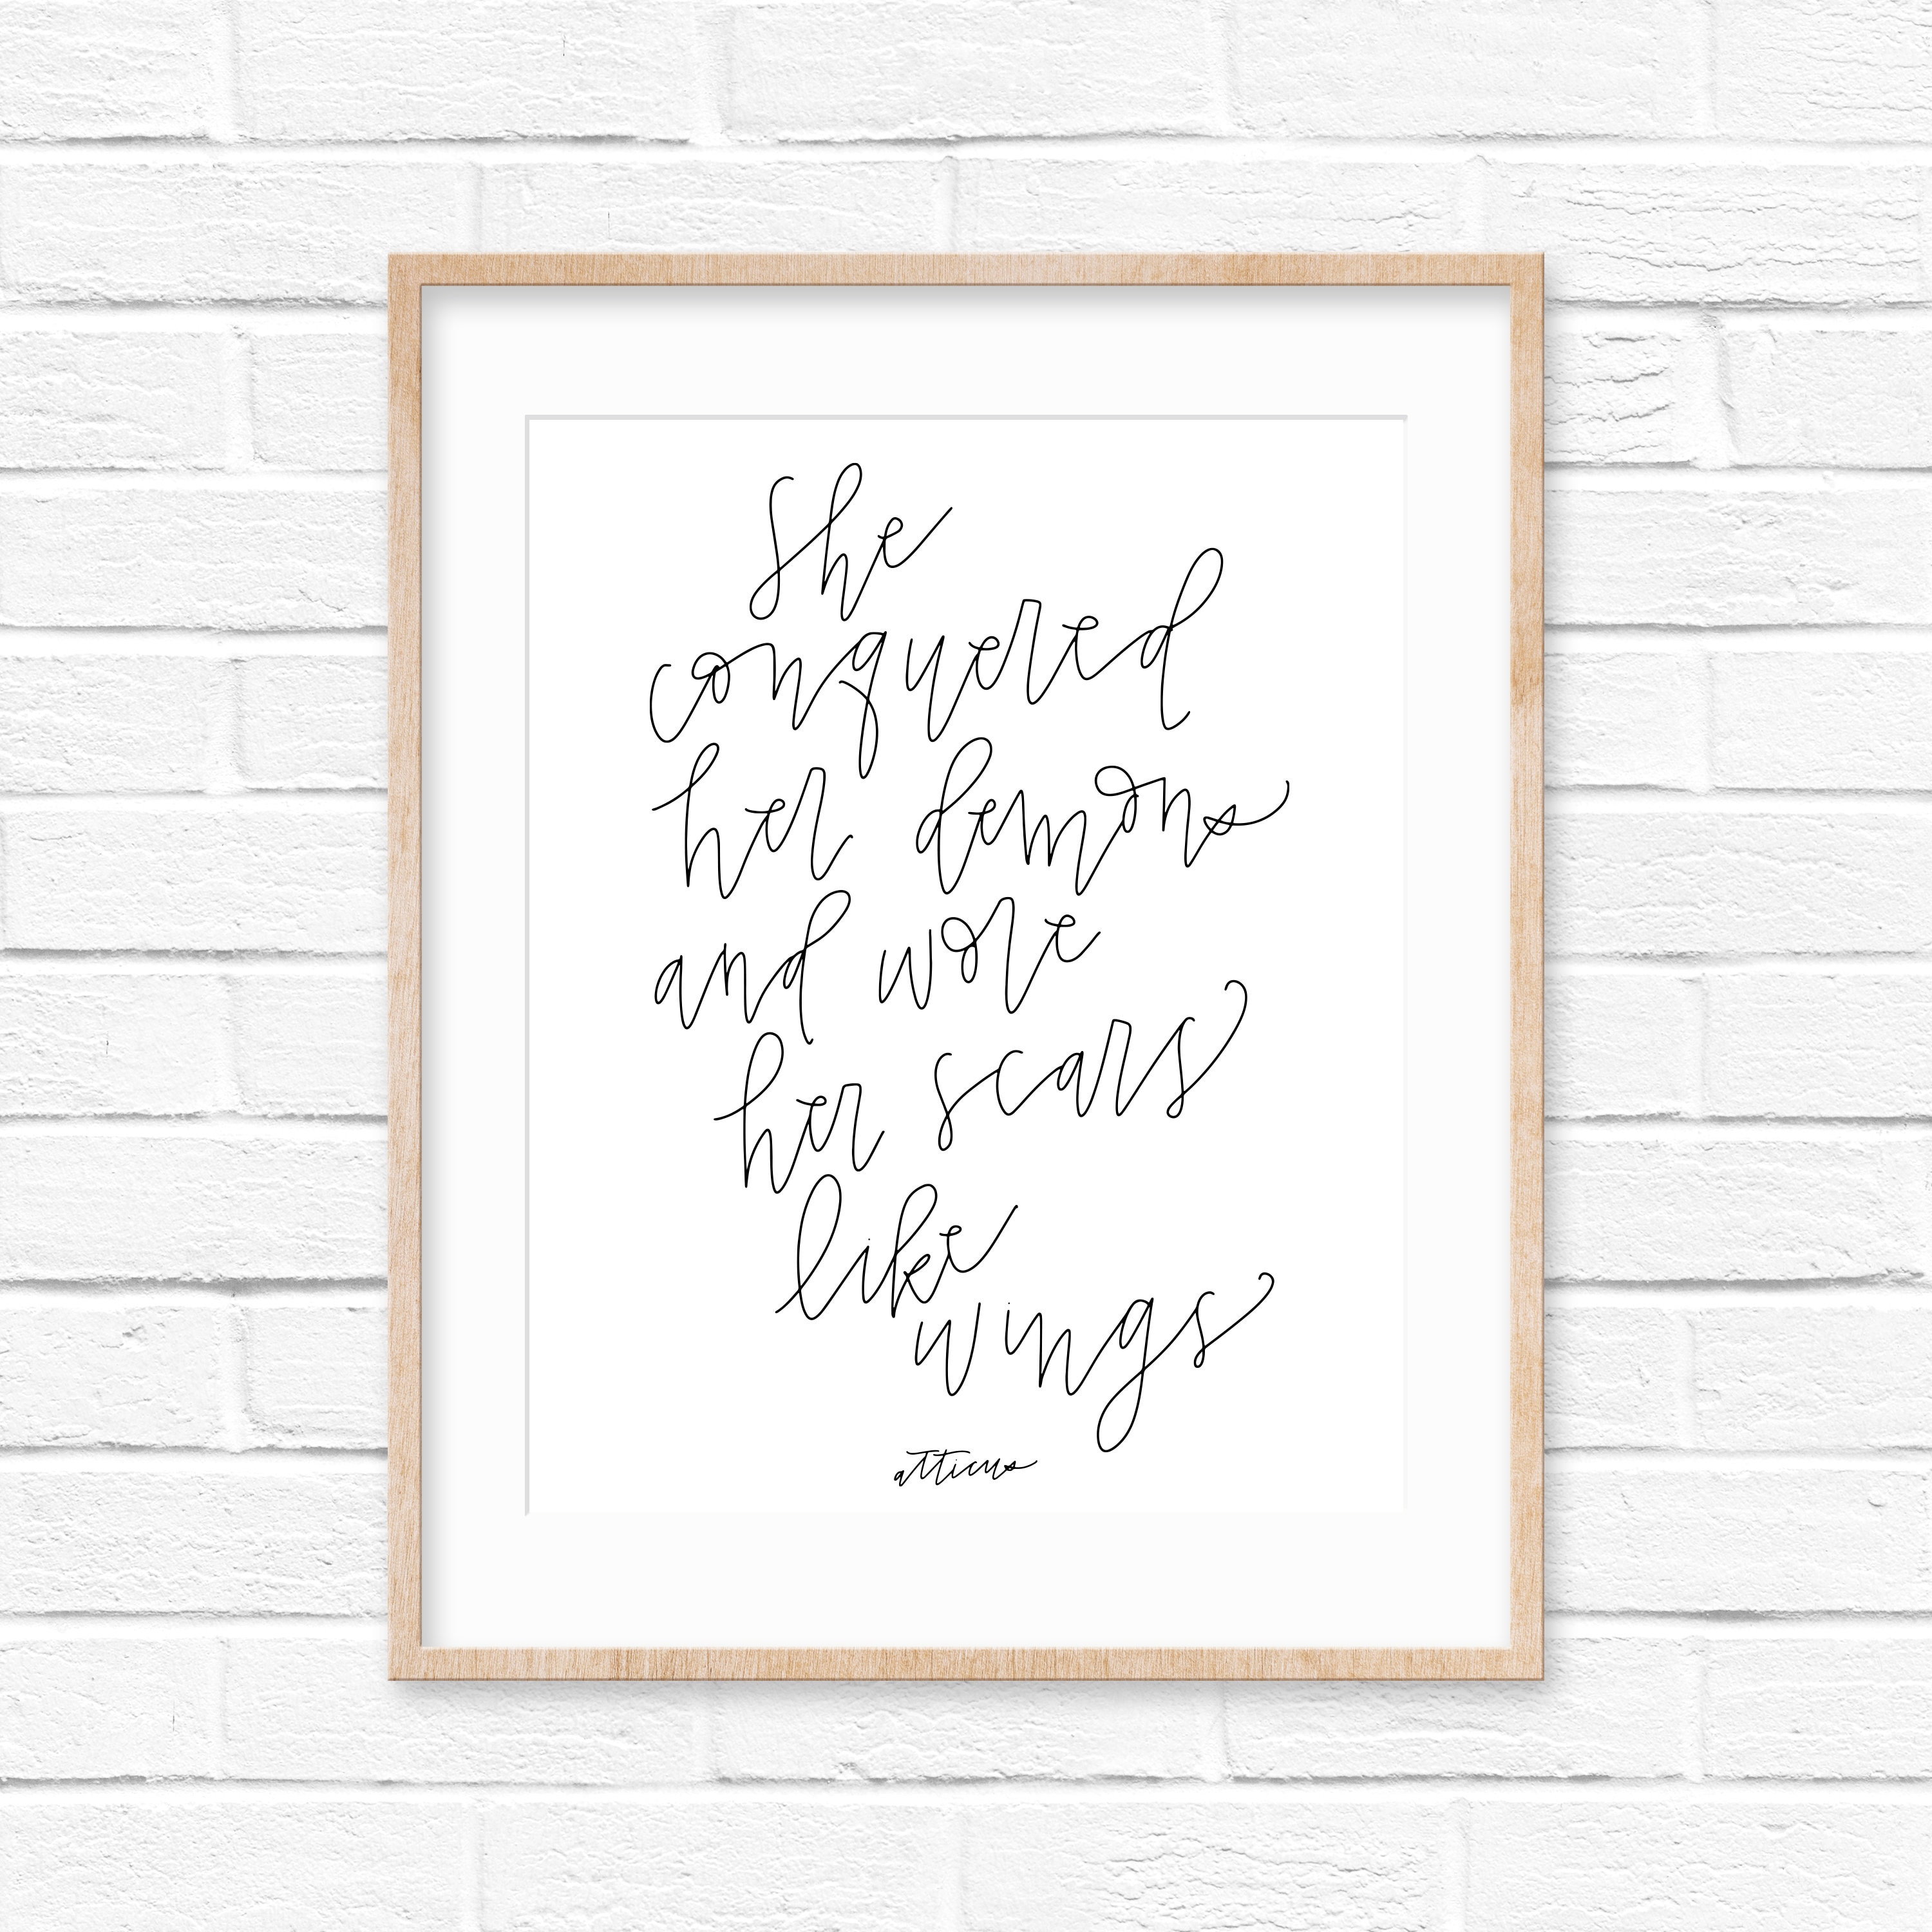 She
conquered
her demons
and wore
her scars
like
wings
atticus